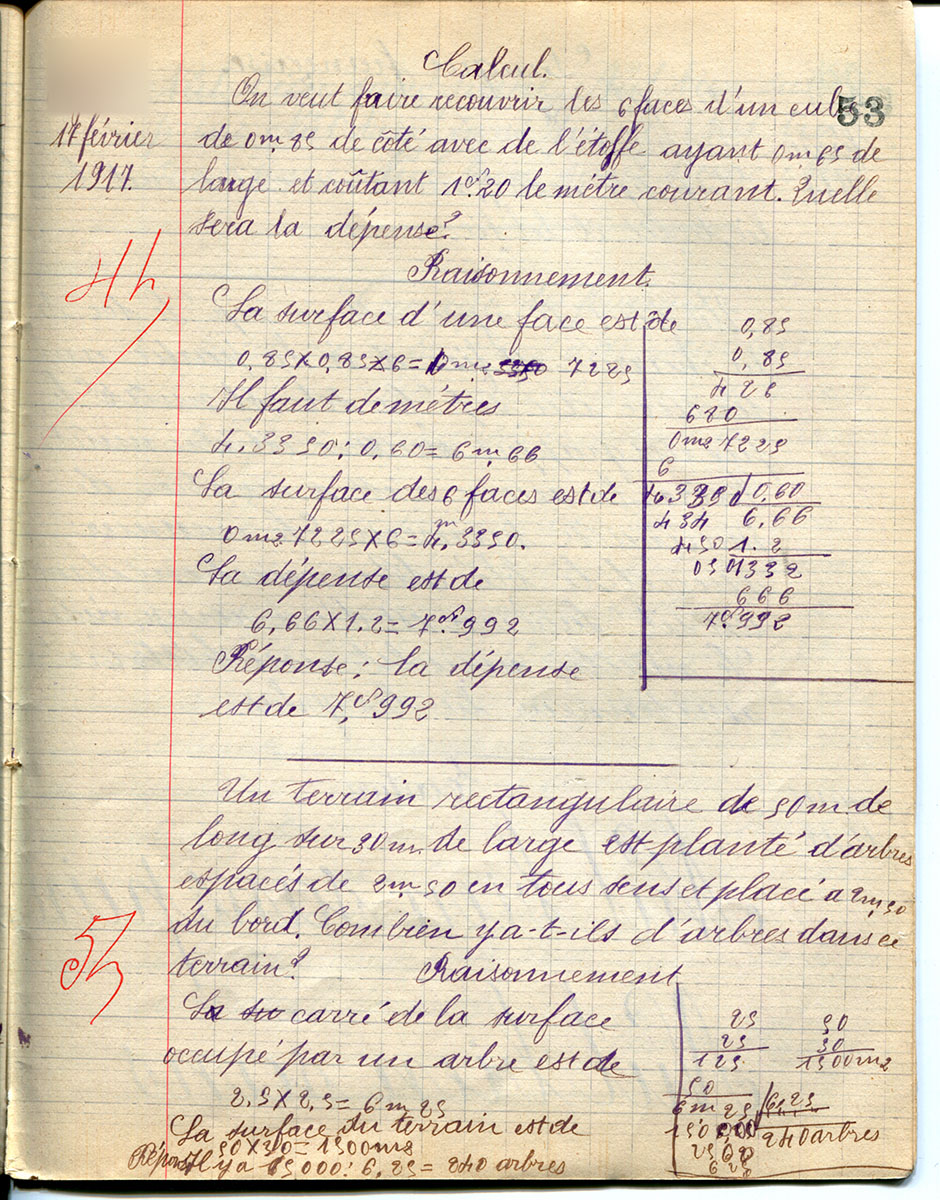 Calcul.
53
17 février
1917.
On veut faire recouvrir les 6 faces d'un cube
de 0m,85 de côté avec de l'étoffe ayant 0m65 de
large et coûtant 1f,20 le mètre courant. Quelle
sera la dépense?
Raisonnement.
La surface d'une face est de
0,85×0,85×6= 0m2 7225
Il faut de mètres
4,3350:0,60= 6m,66
La surface des 6 faces est de
0m2 7225×6= 4,m3350.
La dépense est de
6,66×1.2= 7f,992
Réponse: la dépense
est de 7,f992
0,85
0,85
426
680
0m2 7225
6
4,3350 0,60
434 6,66
450 1.2
050 1332
666
7f,992
Un terrain rectangulaire de 50m. de
long sur 30m. de large est planté d'arbres
espacés de 2m,50 en tous sens et placé a 2m,50
du bord. Combien y a-t-ils d'arbres dans ce
terrain?
Raisonnement
La su carré de la surface
occupé par un arbre est de
2.5×2,5= 6m25
La surface du terrain est de
50×30= 1500m2
Réponse Il y a 15000: 6,25= 240 arbres
25
25
125
50
6m25
50
30
1500m2
6,25
240 arbres
2500